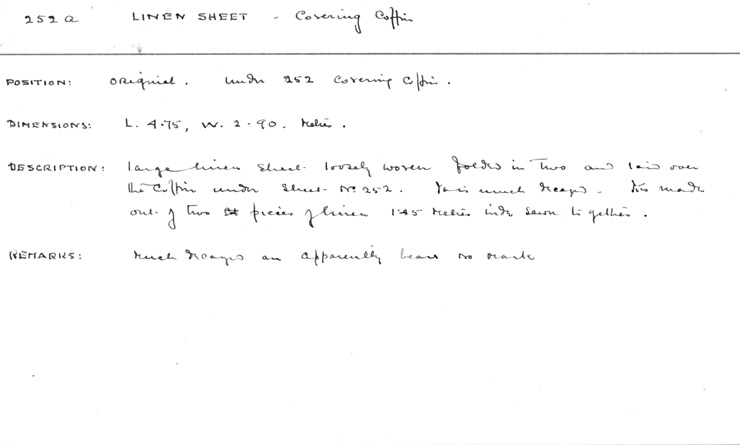 252a LINEN SHEET - Covering Coffin
POSITION: Original. Under 252 covering coffin.
DIMENSIONS: L. 4.75, W. 2.90. Metres.
DESCRIPTION: Large linen sheet loosely woven folded in two and laid over
the Coffin under sheet No 252. It is much decayed. It is made
out of two pieces of linen 1.45 metres wide sewn together.
REMARKS: Much decayed and apparently bears no mark